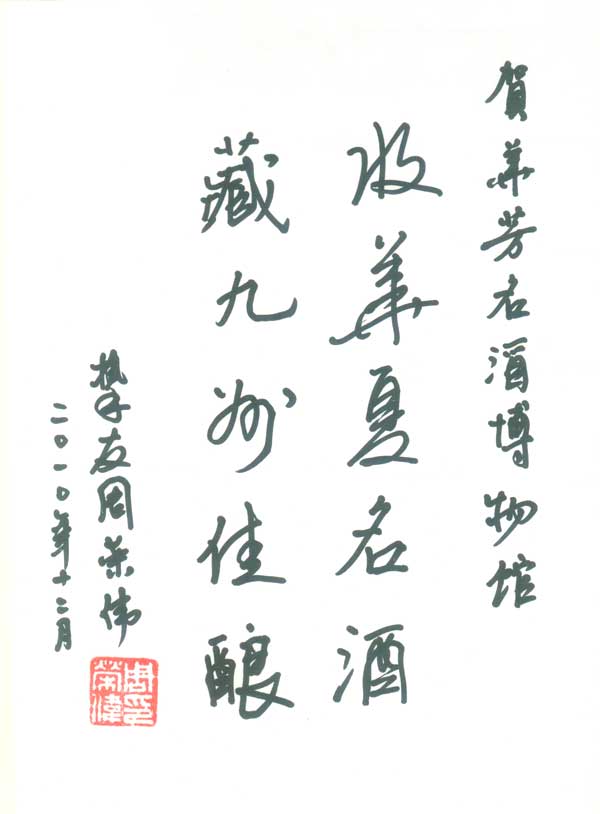 賀華芳名酒博物馆
收華夏名酒
藏九州佳酿
挚友周荣伟
二〇一〇年十二月
周印
榮偉